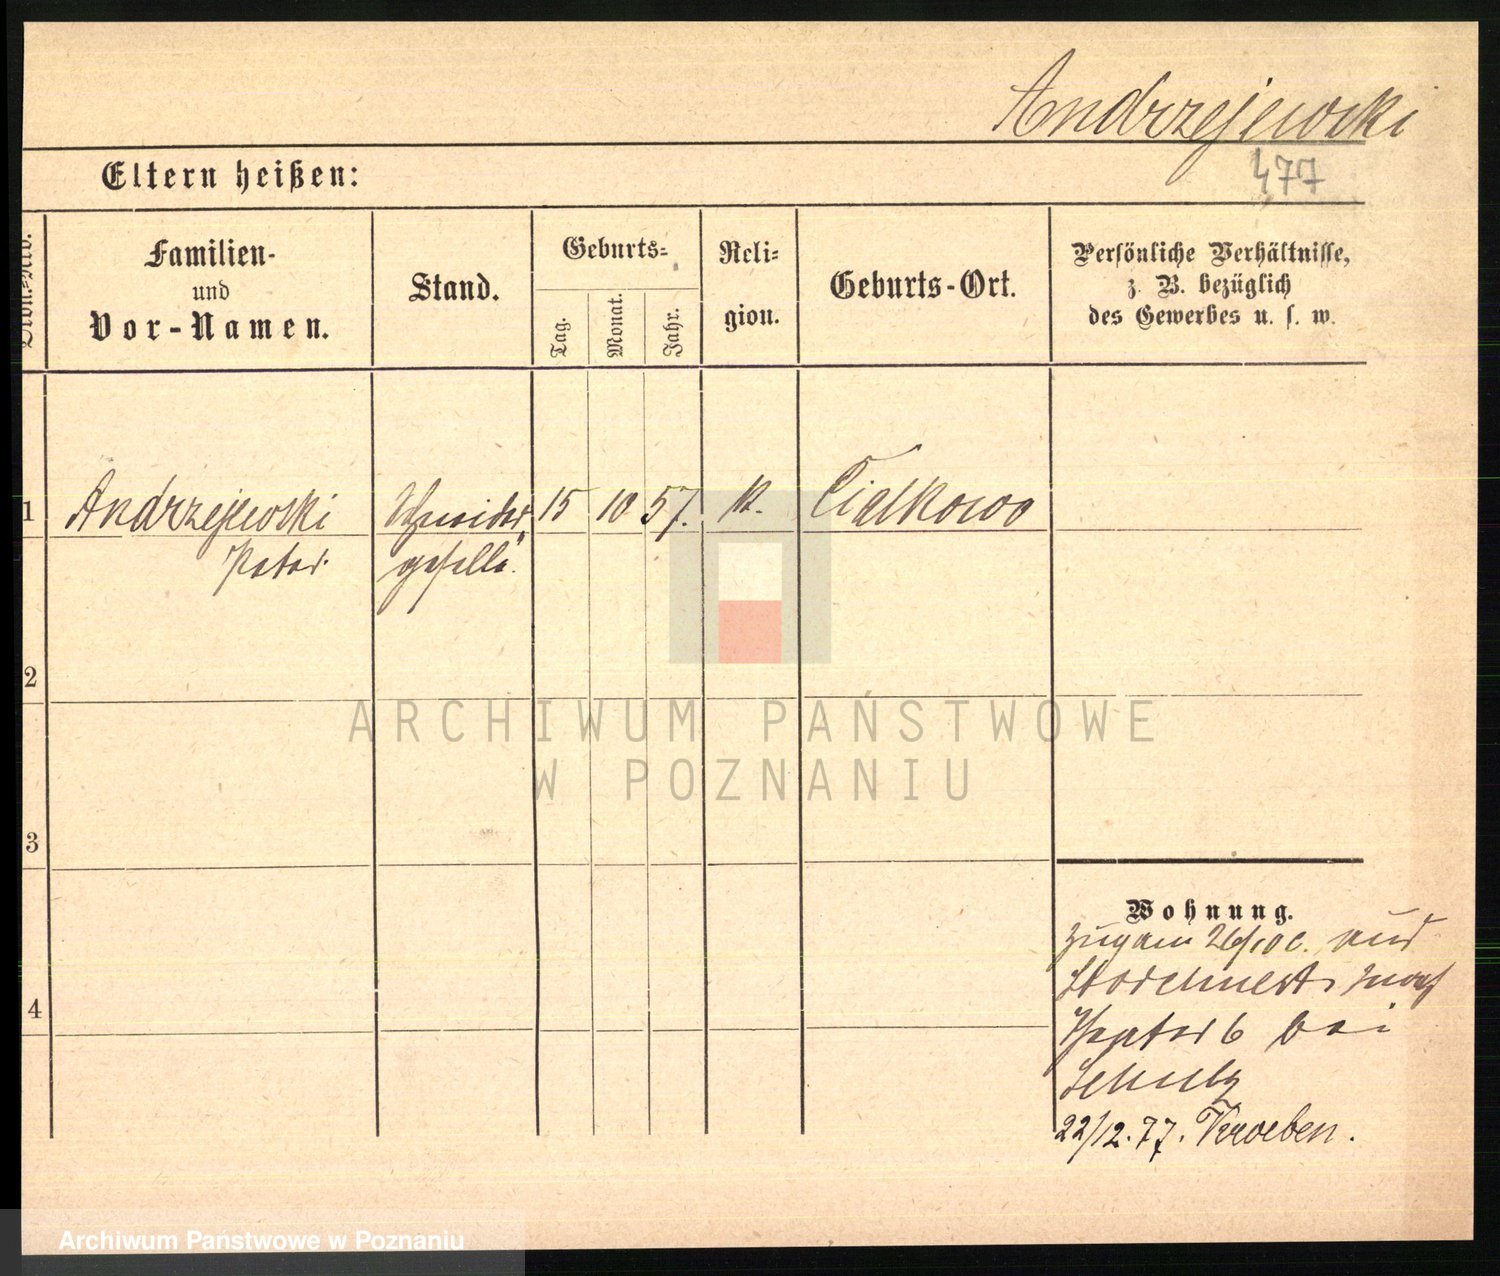 Andrzejewski
477
Eltern heißen:
Familien- und Vor-Namen.
Stand.
Geburts-
Tag.
Monat.
Jahr.
Reli-
gion.
Geburts-Ort.
Persönliche Verhältnisse,
z. B. bezüglich
des Gewerbes u. s. w.
1
Andrzejewski
Peter
Schneider
geselle.
15
10
57.
k.
Cialkowo
2
3
4
ARCHIWUM PAŃSTWOWE
W POZNANIU
Wohnung.
Zugam 26/10 c. aus
Storchnest, nach
Theater 6 bei
Schulz
22/12.77. Kroeben.
Archiwum Państwowe w Poznaniu